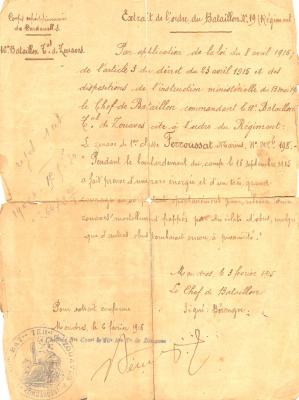 Corps expéditionnaire
des Dardanelles
Bataillon Tal de Zouaves
Extrait de l'ordre du Bataillon N° 19 (Régiment)
Par application de la loi du 8 avril 1915,
de l'article 3 du décret du 23 avril 1915 et des
dispositions de l'instruction ministérielle du 13 mai 1915
le Chef de Bataillon commandant le Bataillon
Tal de Zouaves cite à l'ordre du Régiment:
Le zouave de 1re cl. Ferroussat
Pendant le bombardement du camp le 18 septembre 1915
a fait preuve d'une rare énergie et d'un très grand
courage en se portant spontanément pour relever deux
zouaves mortellement frappés par des éclats d'obus, malgré
que d'autres obus tombaient encore à proximité.
Moudros, le 3 février 1916
Le Chef de Bataillon
Signé: Bérenger
Pour extrait conforme
Moudros, le 6 février 1916